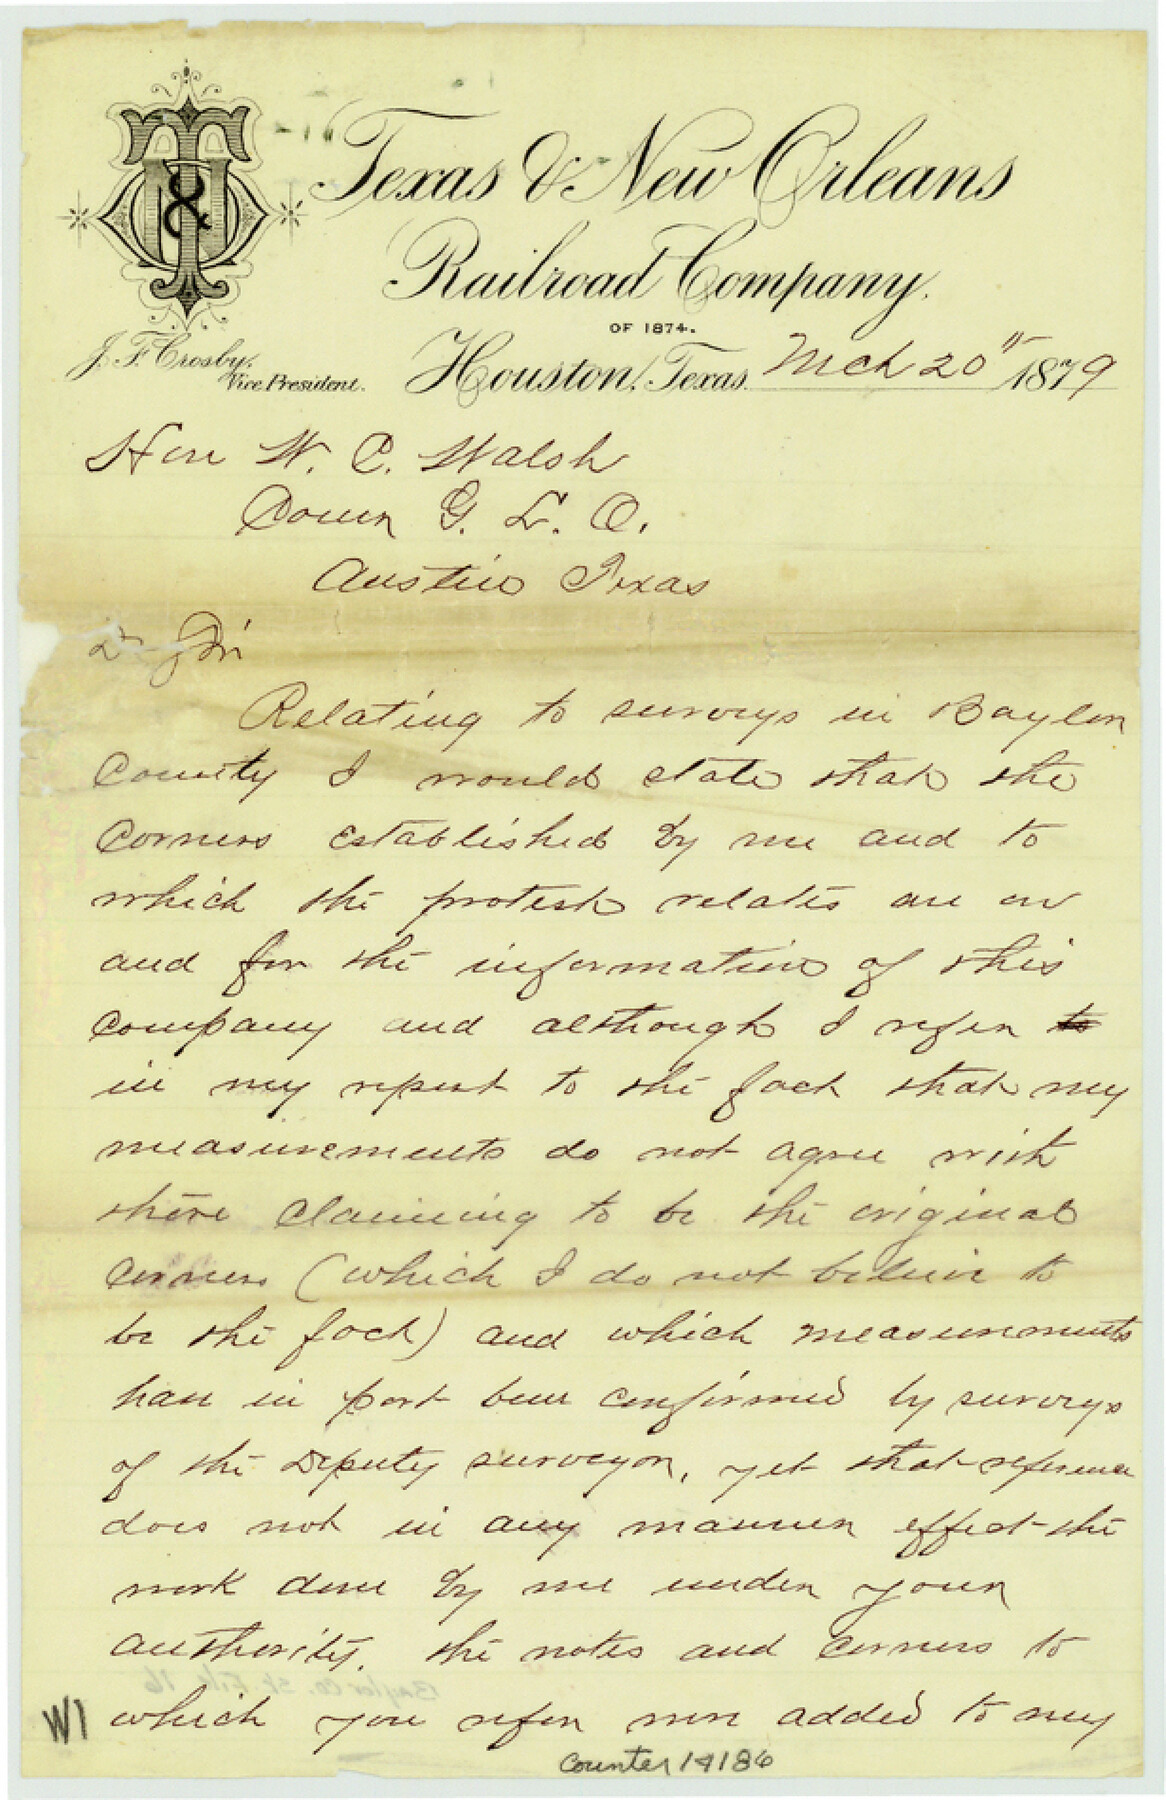 T & NO
Texas & New Orleans
Railroad Company.
OF 1874.
J. F. Crosby,
Vice President.
Houston, Texas. Mch 20" 1879
Hon W. C. Walsh
Comr G. L. O.
Austin Texas
D Sir
Relating to surveys in Baylor
County I would state that the
Corners established by me and to
which the protest relates are on
and for the information of this
Company and although I refer to
in my report to the fact that my
measurements do not agree with
those claiming to be the original
Corners (which I do not believe to
be the fact) and which measurements
have in part been confirmed by surveys
of the Deputy surveyor, yet that reference
does not in any manner effect the
work done by me under your
authority. the notes and corners to
which you refer were added to my
W1
Baylor Co. Sk. File 16
counter 14186